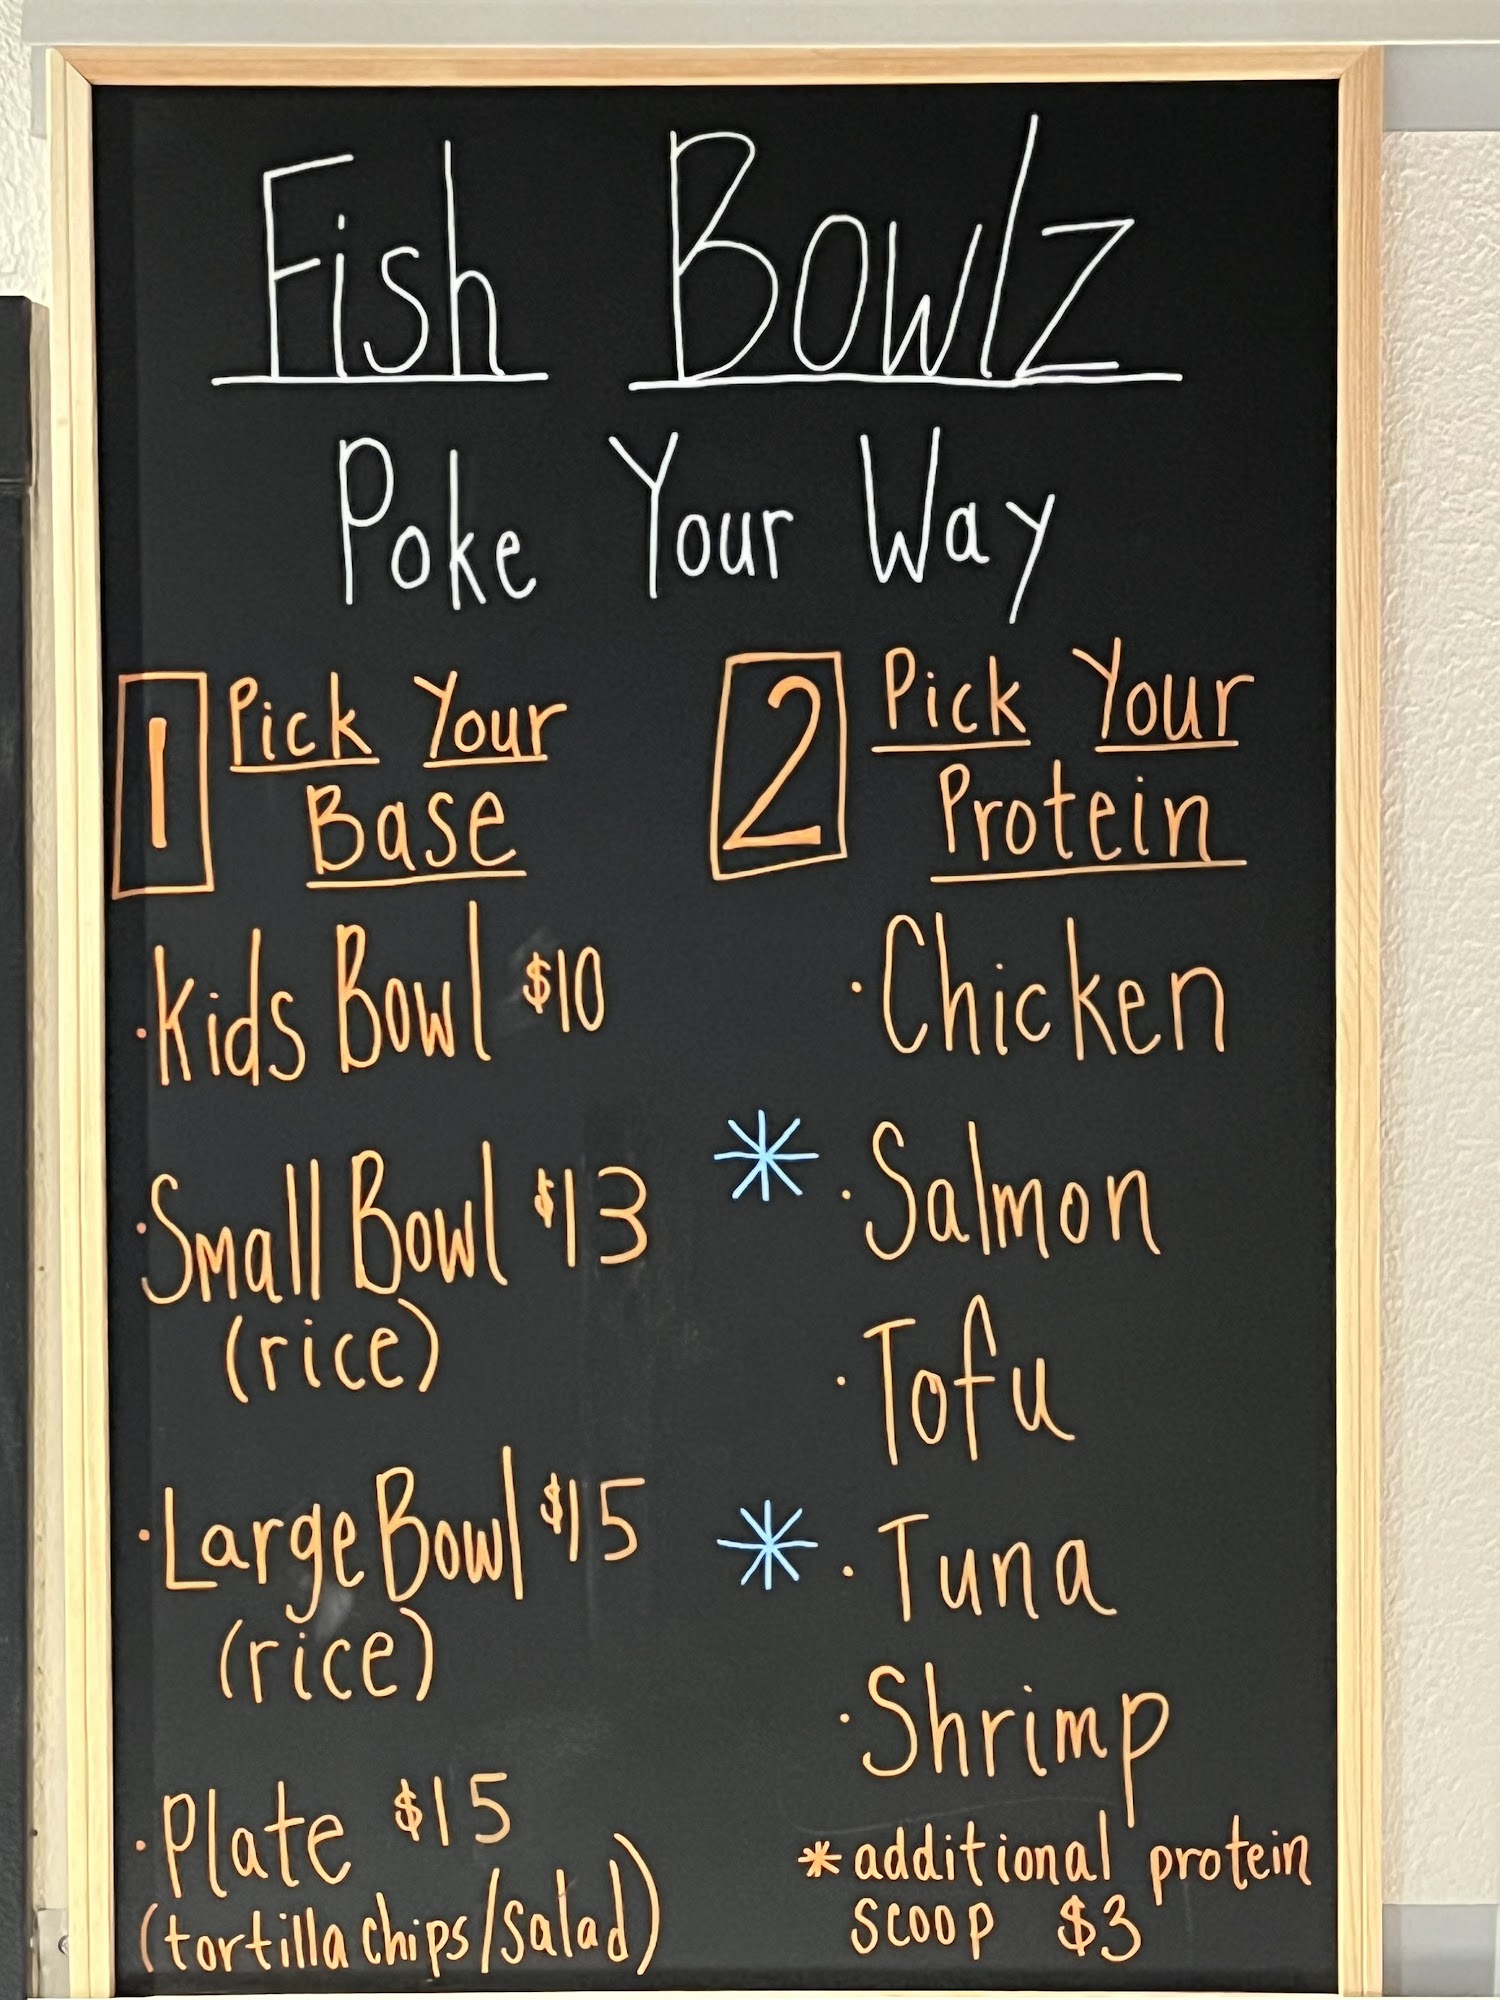 Fish Bowlz
Poke Your Way
1 Pick Your
Base
·Kids Bowl $10
·Small Bowl $13
(rice)
·Large Bowl $15
(rice)
·Plate $15
(tortilla chips/salad)
2 Pick Your
Protein
·Chicken
* ·Salmon
·Tofu
* ·Tuna
·Shrimp
*additional protein
scoop $3